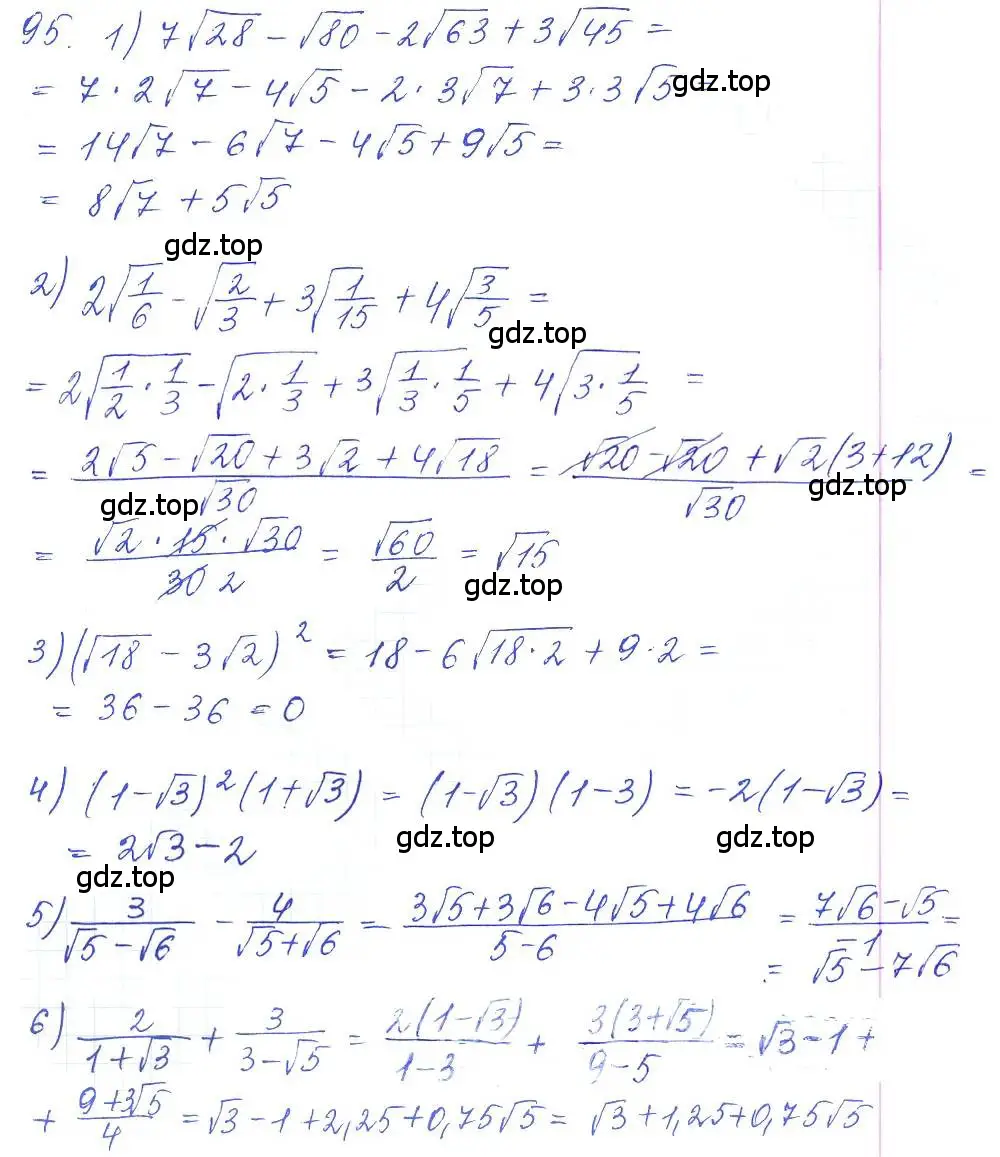 95. 1) 7√28 − √80 − 2√63 + 3√45 =
= 7 · 2√7 − 4√5 − 2 · 3√7 + 3 · 3√5 =
gdz.top
= 14√7 − 6√7 − 4√5 + 9√5 =
= 8√7 + 5√5
gdz.top
2) 2√(1/6) − √(2/3) + 3√(1/15) + 4√(3/5) =
gdz.top
= 2√(1/2 · 1/3) − √(2 · 1/3) + 3√(1/3 · 1/5) + 4√(3 · 1/5) =
= (2√5 − √20 + 3√2 + 4√18)/√30 = (√20 − √20 + √2(3+12))/√30 =
gdz.top gdz.top
= (√2 · 15 · √30)/(30 2) = √60/2 = √15
gdz.top
3) (√18 − 3√2)² = 18 − 6√(18·2) + 9·2 =
= 36 − 36 = 0
4) (1−√3)²(1+√3) = (1−√3)(1−3) = −2(1−√3) =
gdz.top gdz.top
= 2√3 − 2
gdz.top
5) 3/(√5−√6) − 4/(√5+√6) = (3√5+3√6−4√5+4√6)/(5−6) = (7√6−√5)/(−1) =
= √5 − 7√6
6) 2/(1+√3) + 3/(3−√5) = 2(1−√3)/(1−3) + 3(3+√5)/(9−5) = √3 − 1 +
+ (9+3√5)/4 = √3 − 1 + 2,25 + 0,75√5 = √3 + 1,25 + 0,75√5